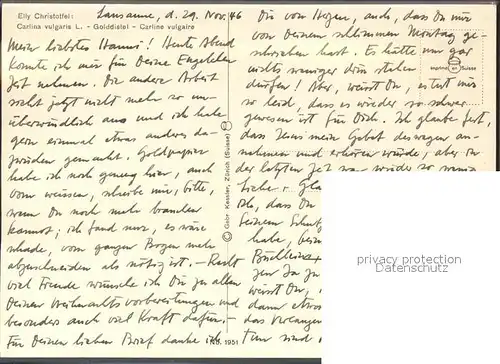 Elly Christoffel:
Carlina vulgaris L. - Golddistel - Carline vulgaire
Lausanne, d. 29. Nov. 46
Mein liebstes Hanni! Heute Abend
konnte ich mir für Deine Engelein
Zeit nehmen. Die andere Arbeit
sieht jetzt nicht mehr so un-
überwindlich aus und ich habe
gern einmal etwas anderes da-
zwischen gemacht. Goldpapier
habe ich noch genug hier, auch
vom weissen, schreibe mir, bitte,
wenn Du noch mehr brauchen
kannst; ich fand nur, es wäre
schade, vom ganzen Bogen mehr
abzuschneiden als nötig ist. - Recht
viel Freude wünsche ich Dir zu allen
Deinen Weihnachtsvorbereitungen und
besonders auch viel Kraft dafür, -
für Deinen lieben Brief danke ich
© Gebr. Kessler, Zürich (Suisse)
KB. 1951
Dir von Herzen, auch, dass Du mir
von Deinem schlimmen Montag ge-
schrieben hast. Es hätte um gar
nichts weniger drin stehen
dürfen! Aber, weisst Du, es tut mir
so leid, dass es wieder so schwer
gewesen ist für Dich. Ich glaube fest,
dass Jesus mein Gebet deswegen an-
nehmen und erhören würde, aber in
der letzten Zeit war wieder so
Liebe
ich, dass Du
Seinem
habe,
zen Ja zu
weisst Du,
dann etwas
das Verlangen
tun sind
imprimé en Suisse
privacy protection
Datenschutz